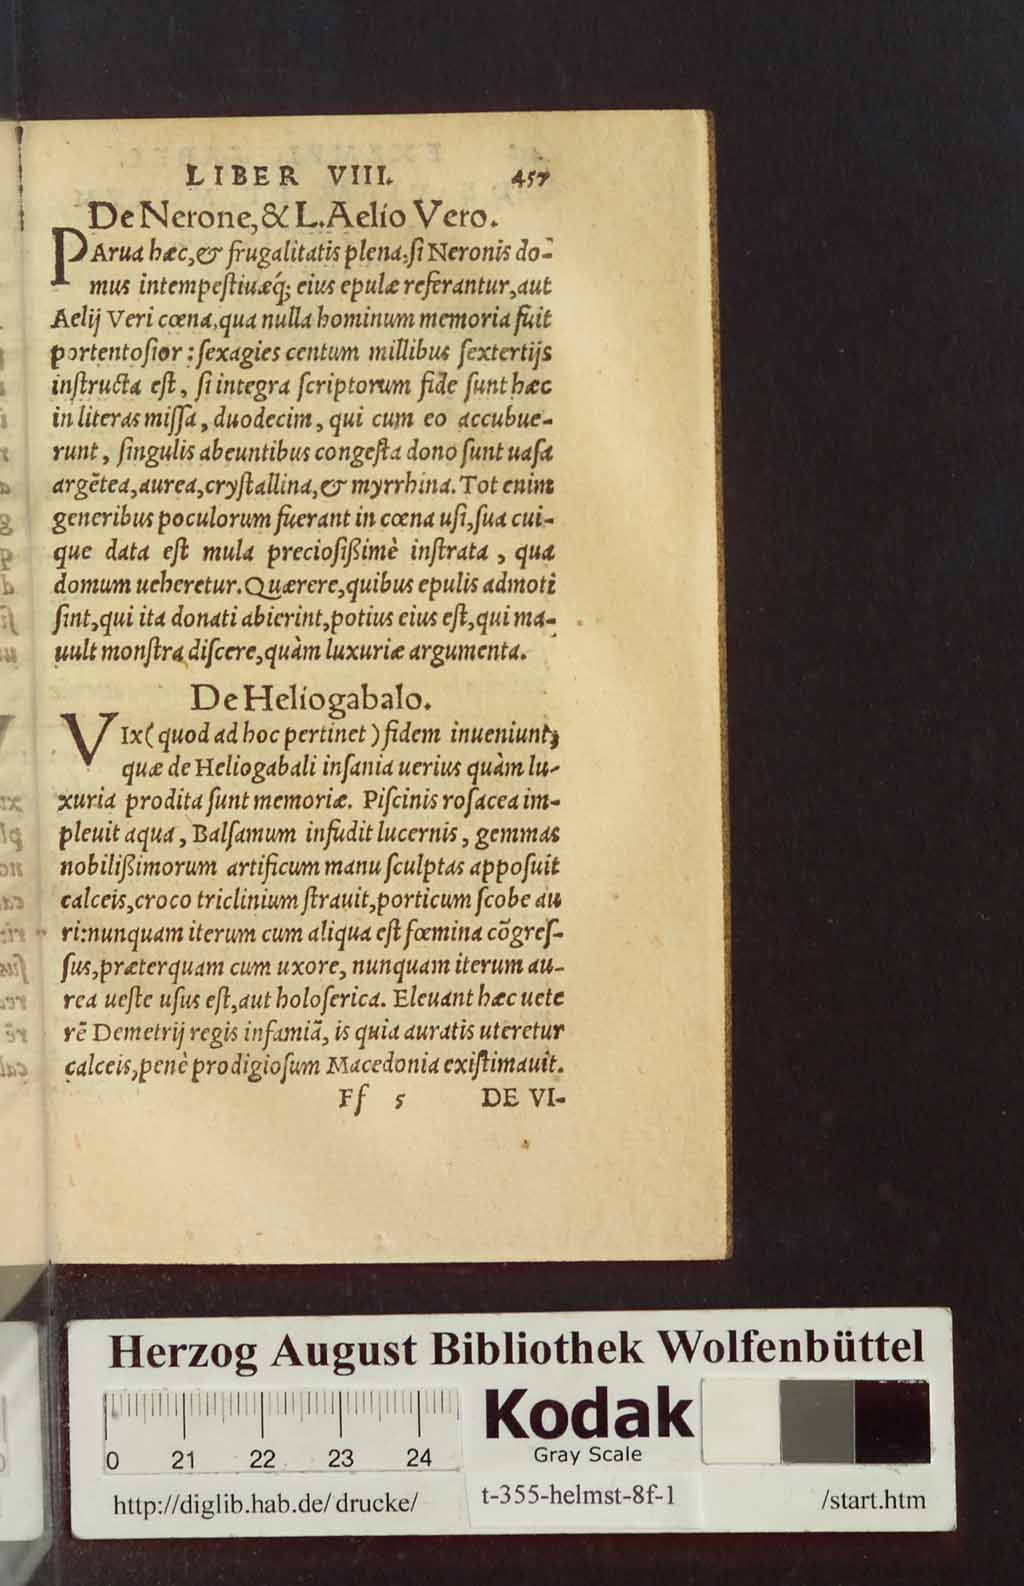 LIBER VIII. 457
De Nerone, & L. Aelio Vero.
PArua hæc, & frugalitatis plena, ſi Neronis do-
mus intempeſtiuæq́; eius epulæ referantur, aut
Aelij Veri cœna, qua nulla hominum memoria fuit
portentoſior: ſexagies centum millibus ſextertijs
inſtructa eſt, ſi integra ſcriptorum fide ſunt hæc
in literas miſſa, duodecim, qui cum eo accubue-
runt, ſingulis abeuntibus congeſta dono ſunt uaſa
argētea, aurea, cryſtallina, & myrrhina. Tot enim
generibus poculorum fuerant in cœna uſi, ſua cui-
que data eſt mula precioſißimè inſtrata, qua
domum ueheretur. Quærere, quibus epulis admoti
ſint, qui ita donati abierint, potius eius eſt, qui ma-
uult monſtra diſcere, quàm luxuriæ argumenta.
De Heliogabalo.
VIx (quod ad hoc pertinet) fidem inueniunt,
quæ de Heliogabali inſania uerius quàm lu-
xuria prodita ſunt memoriæ. Piſcinis roſacea im-
pleuit aqua, Balſamum infudit lucernis, gemmas
nobilißimorum artificum manu ſculptas appoſuit
calceis, croco triclinium ſtrauit, porticum ſcobe au
ri: nunquam iterum cum aliqua eſt fœmina cōgreſ-
ſus, præterquam cum uxore, nunquam iterum au-
rea ueſte uſus eſt, aut holoſerica. Eleuant hæc uete
rē Demetrij regis infamiā, is quia auratis uteretur
calceis, penè prodigioſum Macedonia exiſtimauit.
Ff 5 DE VI-
Herzog August Bibliothek Wolfenbüttel
0 21 22 23 24
Kodak
Gray Scale
http://diglib.hab.de/drucke/ t-355-helmst-8f-1 /start.htm